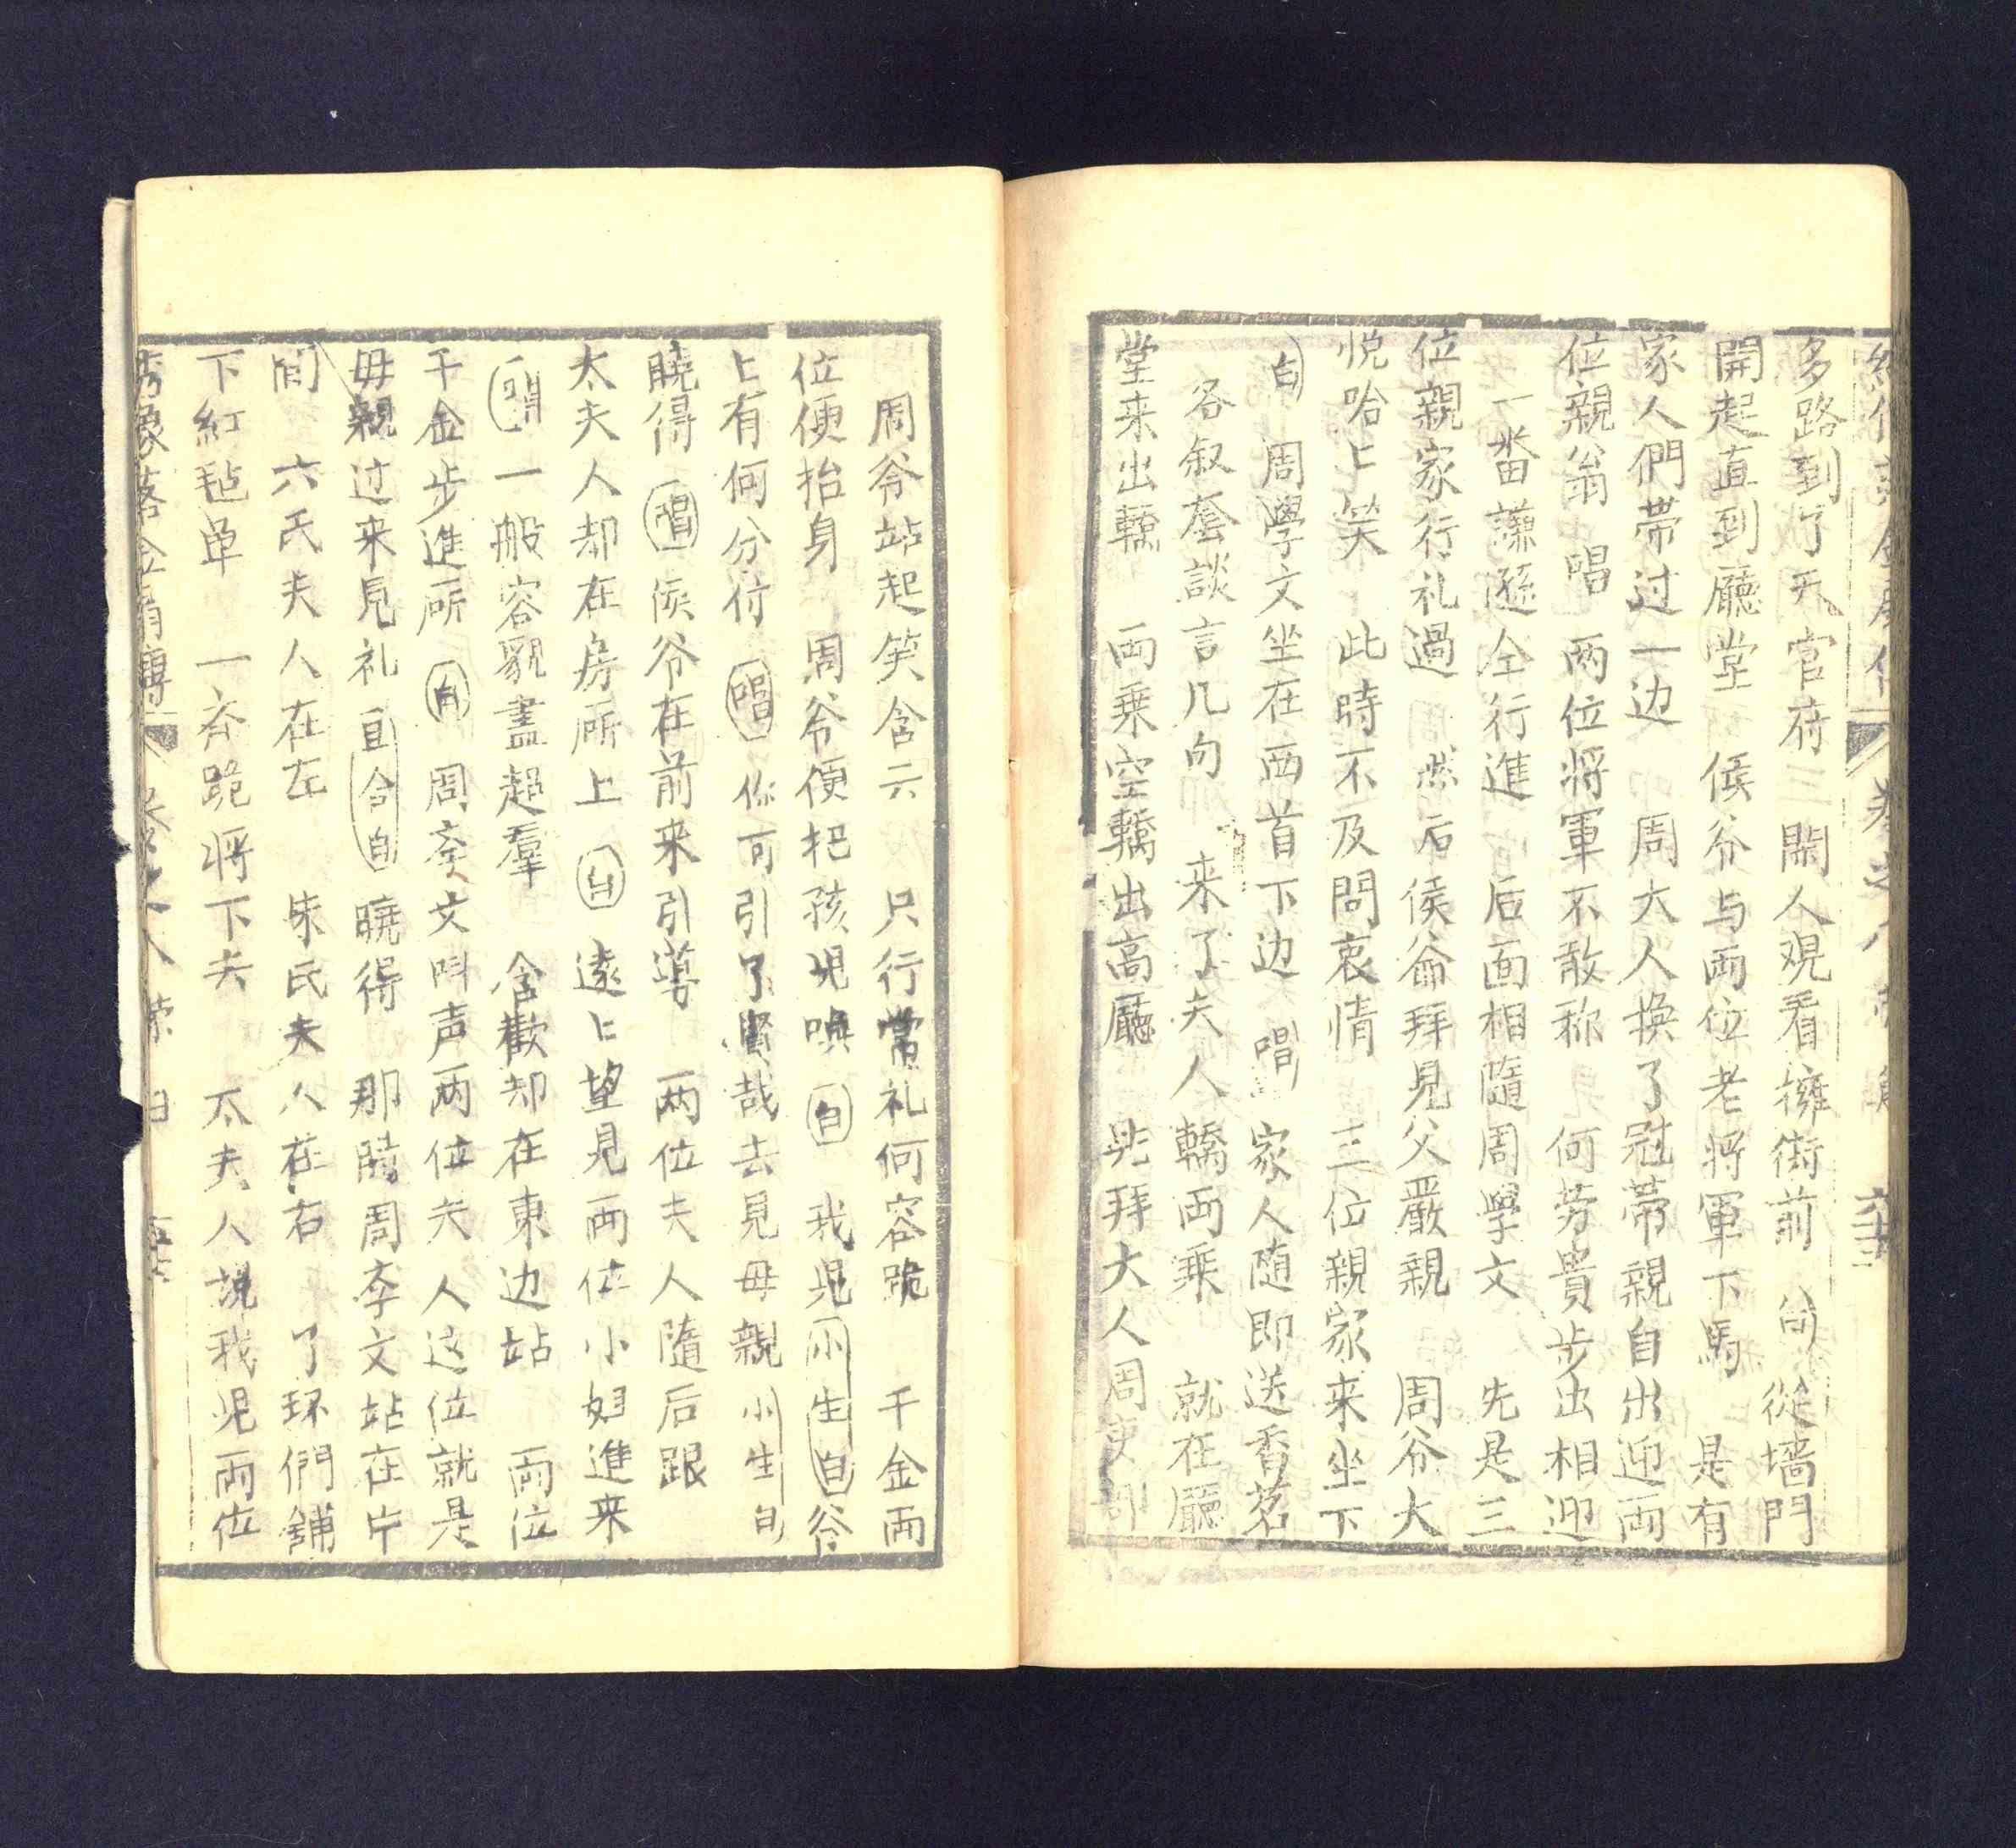 多路到了天官府 閑人观看擁街前 從墙門
開起直到廳堂 侯爷与両位老将軍下馬 是有
家人們带过一边 周大人换了冠带親自出迎両
位親翁 唱 両位将軍不敢称 何劳貴步出相迎
一番謙遜全行進 后面相隨周學文 先是三
位親家行礼過 然后侯爺拜見父嚴親 周爷大
悦哈上笑 此時不及問衷情 三位親家来坐下
白 周學文坐在西首下边 唱 家人随即送香茗
各叙套談言几句 来了夫人轎両乗 就在廳
堂来出轎 両乗空轎出高廳 先拜大人周
周爷站起笑含云 只行常礼何容跪 千金両
位便抬身 周爷便把孩児唤 白 我児 小生白 爷
上有何分付 唱 你可引了賢哉去見母親 小生白
曉得 唱 侯爷在前来引導 両位夫人隨后跟
太夫人却在房所上 白 遠上望見両位小姐進来
唱 一般容貌盡超羣 含歡却在東边站 両位
千金步進所 白 周李文呌声両位夫人这位就是
母親过来見礼 旦合白 曉得 那時周李文站在片
间 六氏夫人在左 朱氏夫人在右 了环們鋪
下紅毡单 一齐跪将下去 太夫人説我児両位